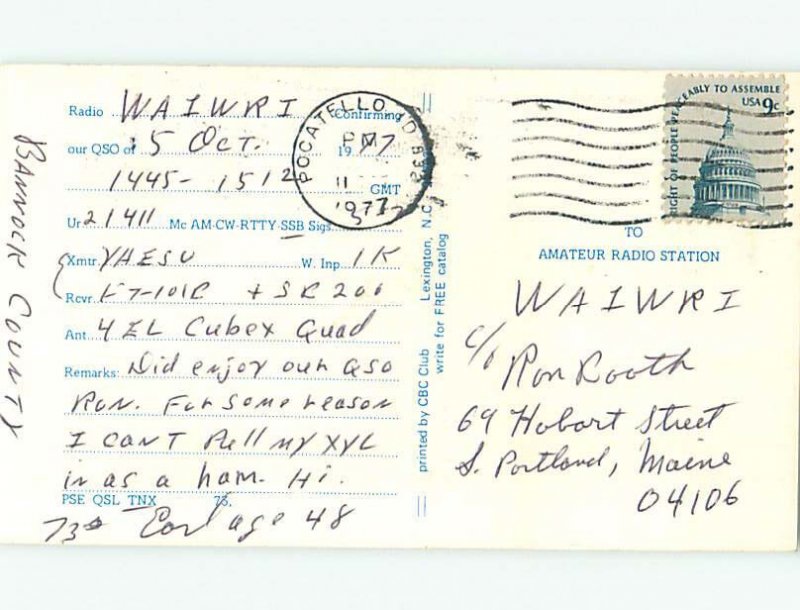 Radio WA1WRI Confirming
our QSO of 15 Oct. 1977
1445-1512 GMT
Ur 21411 Mc AM-CW-RTTY-SSB Sigs
Xmtr YAESU W. Inp 1K
Rcvr FT-101E + SB 200
Ant. 4 EL Cubex Quad
Remarks: Did enjoy our QSO
Ron. For some reason
I can't sell my XYL
in as a ham. Hi.
PSE QSL TNX 73,
73s Earl age 48
BANNOCK COUNTY
POCATELLO, ID 832
PM
11
1977
printed by CBC Club Lexington, N.C.
write for FREE catalog
RIGHT OF PEOPLE PEACEABLY TO ASSEMBLE
USA 9c
TO
AMATEUR RADIO STATION
WA1WRI
c/o Ron Booth
69 Hobart Street
S. Portland, Maine
04106